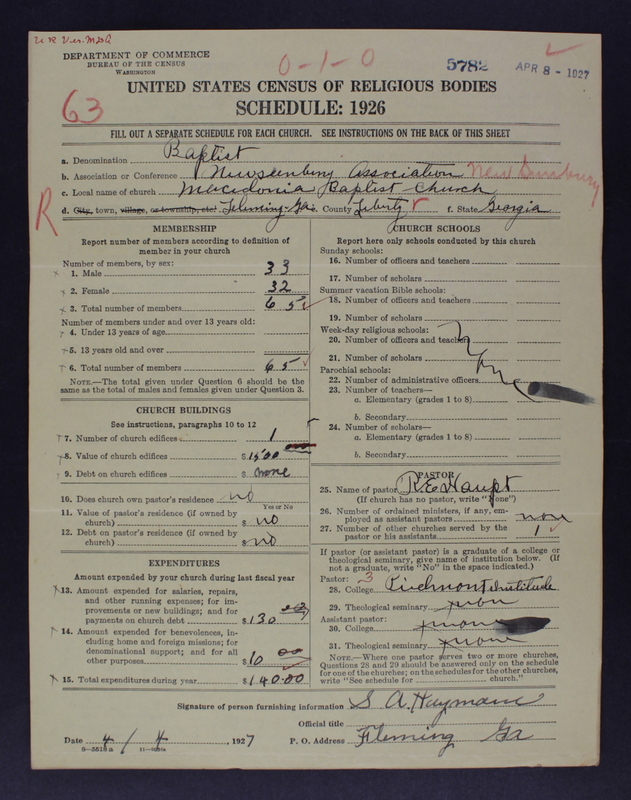 DEPARTMENT OF COMMERCE
BUREAU OF THE CENSUS
WASHINGTON
0-1-0
5782
APR 8 - 1927
UNITED STATES CENSUS OF RELIGIOUS BODIES
SCHEDULE: 1926
63
FILL OUT A SEPARATE SCHEDULE FOR EACH CHURCH. SEE INSTRUCTIONS ON THE BACK OF THIS SHEET
a. Denomination Baptist
b. Association or Conference Association
c. Local name of church Macedonia Baptist Church
R
d. City, town, village, or township, etc. Fleming Ga e. County Liberty f. State Georgia
MEMBERSHIP
Report number of members according to definition of
member in your church
Number of members, by sex:
1. Male 33
2. Female 32
3. Total number of members 65
Number of members under and over 13 years old:
4. Under 13 years of age
5. 13 years old and over
6. Total number of members 65
NOTE.—The total given under Question 6 should be the
same as the total of males and females given under Question 3.
CHURCH BUILDINGS
See instructions, paragraphs 10 to 12
7. Number of church edifices 1
8. Value of church edifices $1500
9. Debt on church edifices $ none
10. Does church own pastor's residence no
Yes or No
11. Value of pastor's residence (if owned by
church) $ no
12. Debt on pastor's residence (if owned by
church) $ no
EXPENDITURES
Amount expended by your church during last fiscal year
13. Amount expended for salaries, repairs,
and other running expenses; for im-
provements or new buildings; and for
payments on church debt $130
14. Amount expended for benevolences, in-
cluding home and foreign missions; for
denominational support; and for all
other purposes $10 00
15. Total expenditures during year $140.00
CHURCH SCHOOLS
Report here only schools conducted by this church
Sunday schools:
16. Number of officers and teachers
17. Number of scholars
Summer vacation Bible schools:
18. Number of officers and teachers
19. Number of scholars
Week-day religious schools:
20. Number of officers and teachers
21. Number of scholars
Parochial schools:
22. Number of administrative officers
23. Number of teachers—
a. Elementary (grades 1 to 8)
b. Secondary
24. Number of scholars—
a. Elementary (grades 1 to 8)
b. Secondary
none
PASTOR
25. Name of pastor R.E. Haupt
(If church has no pastor, write "None")
26. Number of ordained ministers, if any, em-
ployed as assistant pastors none
27. Number of other churches served by the
pastor or his assistants 1
If pastor (or assistant pastor) is a graduate of a college or
theological seminary, give name of institution below. (If
not a graduate, write "No" in the space indicated.)
Pastor: 3
28. College Piedmont Institute
29. Theological seminary
Assistant pastor:
30. College
31. Theological seminary
NOTE.—Where one pastor serves two or more churches,
Questions 28 and 29 should be answered only on the schedule
for one of the churches; on the schedules for the other churches,
write "See schedule for church."
Signature of person furnishing information S A Haymans
Official title
Date 4/4, 1927 P. O. Address Fleming Ga